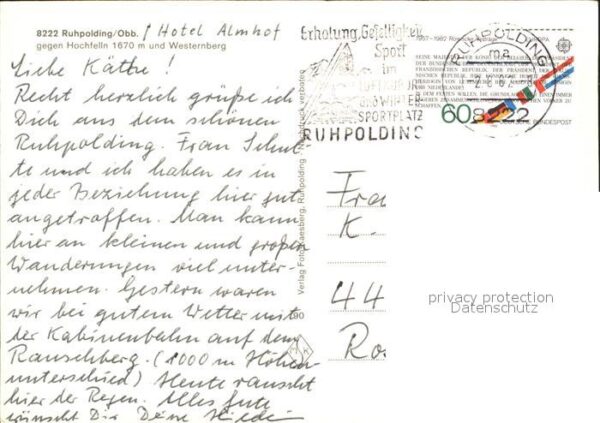 8222 Ruhpolding/Obb. / Hotel Almhof
gegen Hochfelln 1670 m und Westernberg
Liebe Käthe!
Recht herzlich grüße ich
Dich aus dem schönen
Ruhpolding. Frau Schul-
te und ich haben es in
jeder Beziehung hier gut
angetroffen. Man kann
hier an kleinen und großen
Wanderungen viel unter-
nehmen. Gestern waren
wir bei gutem Wetter mit
der Kabinenbahn auf dem
Rauschberg. (1000 m Höhen-
unterschied) Heute rauscht
hier der Regen. Alles Gute
wünscht Dir Deine
Erholung, Geselligkeit
Sport
im
LUFTKURORT
und WINTER-
SPORTPLATZ
RUHPOLDING
RUHPOLDING
8222
1957-1982 Römische Verträge
EUROPA
60
DEUTSCHE BUNDESPOST
Ruhpolding
Nachdruck verboten
Fra
K.
44
Ro
privacy protection
Datenschutz